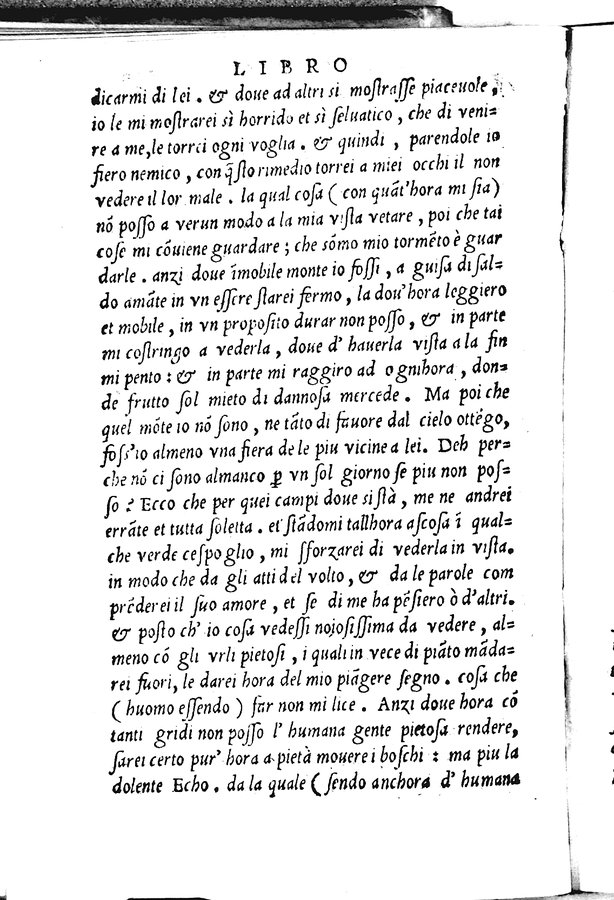 LIBRO
dicarmi di lei . & doue ad altri si mostraſſe piaceuole ,
io le mi mostrarei sì horrido et sì ſeluatico , che di veni=
re a me,le torrei ogni voglia . & quindi , parendole io
fiero nemico , con q̃sto rimedio torrei a miei occhi il non
vedere il lor male . la qual coſa ( con quãt'hora mi ſia)
nõ poſſo a verun modo a la mia vista vetare , poi che tai
coſe mi cõuiene guardare ; che sõmo mio tormẽto è guar
darle . anzi doue ĩmobile monte io foſſi , a guiſa di ſal=
do amãte in vn eſſere starei fermo , la dou'hora leggiero
et mobile , in vn propoſito durar non poſſo , & in parte
mi costringo a vederla , doue d' hauerla vista a la fin
mi pento : & in parte mi raggiro ad ognihora , don=
de frutto ſol mieto di dannoſa mercede . Ma poi che
quel mõte io nõ ſono , ne tãto di fauore dal cielo ottẽgo,
foſs'io almeno vna fiera de le piu vicine a lei. Deh per=
che nõ ci ſono almanco ꝑ vn ſol giorno ſe piu non poſ=
ſo ? Ecco che per quei campi doue si stà , me ne andrei
errãte et tutta ſoletta . et stãdomi talhhora aſcoſa ĩ qual=
che verde ceſpoglio , mi sforzarei di vederla in vista.
in modo che da gli atti del volto , & da le parole com
prẽderei il ſuo amore , et ſe di me ha pẽſiero ò d'altri.
& posto ch' io coſa vedeſſi noioſiſſima da vedere , al=
meno cõ gli vrli pietoſi , i quali in vece di piãto mãda=
rei fuori, le darei hora del mio piãgere ſegno . coſa che
( huomo eſſendo ) far non mi lice . Anzi doue hora cõ
tanti gridi non poſſo l' humana gente pietoſa rendere,
ſarei certo pur' hora a pietà mouere i boſchi : ma piu la
dolente Echo . da la quale ( ſendo anchora d' humana